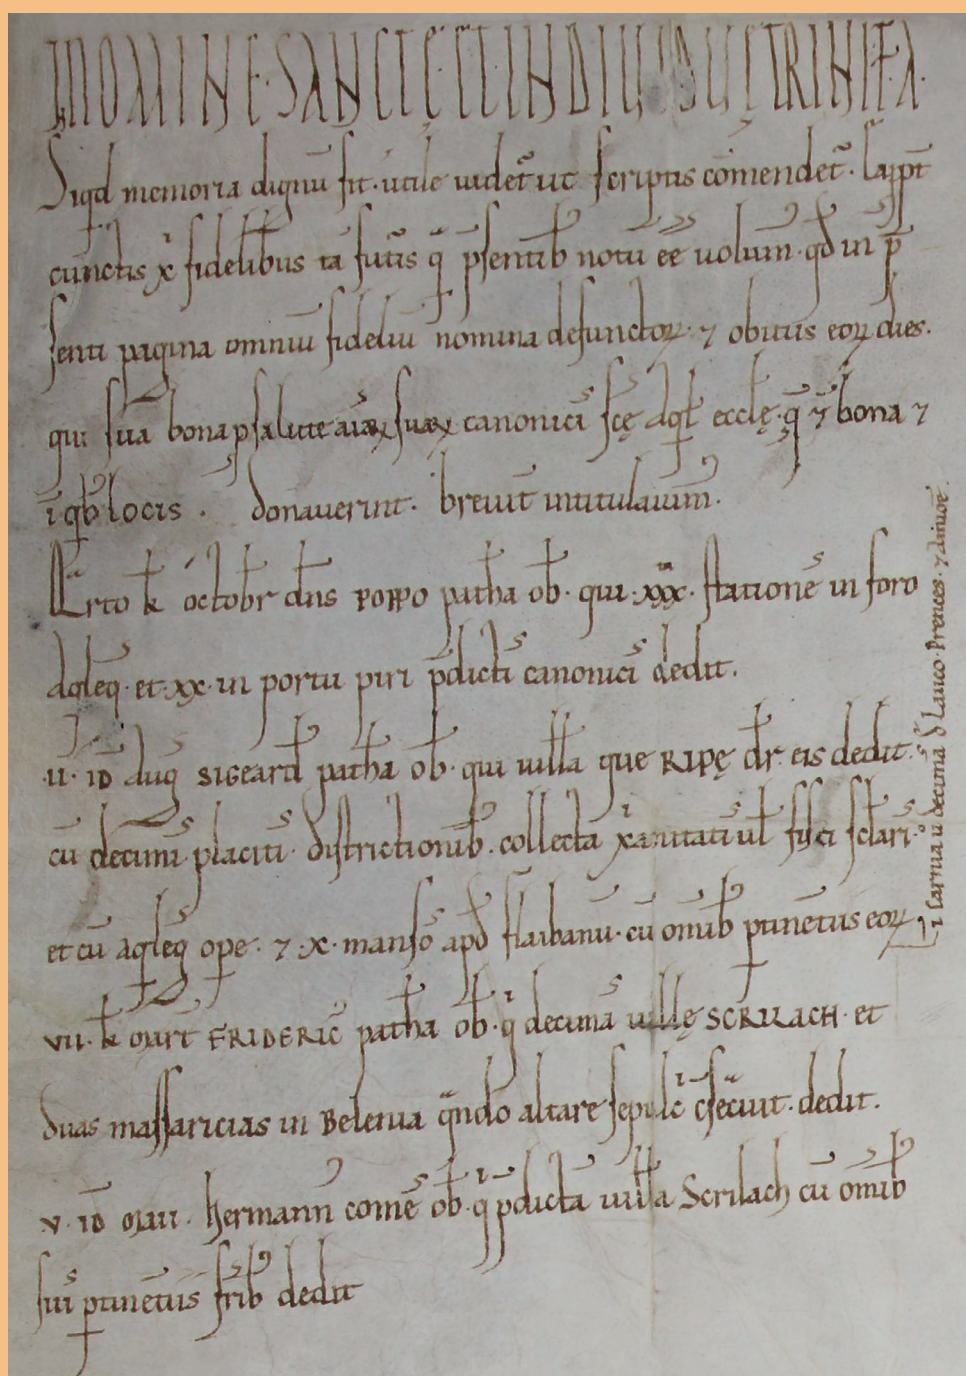 IN NOMINE SANCTĘ ET INDIUIDUĘ TRINITA
Siqd memoria dignū sit · utile uidet̄ ut scriptis cōmendet̄ ·
cunctis x̄ fidelibus tā futis q̄ p̄sentib notū ēē uolum · qd in p̄
senti pagina omniū fideliū nomina defunctoꝝ ⁊ obitus eoꝝ dies .
qui sua bona p salute aīaꝝ suaꝝ canonicis scę aql ecclę · bona ⁊
ī qb locis . donauerint . breuit intitulauim .
k octobr dns POPPO patha ob · qui · xxx · statione in foro
aqleg · et · xx · in portu piri p̄dictis canonicis dedit .
· II · ID Aug SIGEARD patha ob · qui uilla que RIPĘ dr · eis dedit ·
cū decimis placitis · districtionib · collecta fisci
et cū aqleg ope · ⁊ · x · mansos apd flaibanu · cū omib ptinetus eoꝝ
VII · k mart FRIDERIC patha ob · q decima uillę SCRILACH · et
duas massaricias in Belenia q̄ndo altare sepulc c̄secuit · dedit .
V · ID maii · hermann comes ob · q p̄dicta uilla Scrilach cū omib
suis ptinetus frib dedit
ī carnia u decima d Lauco ·